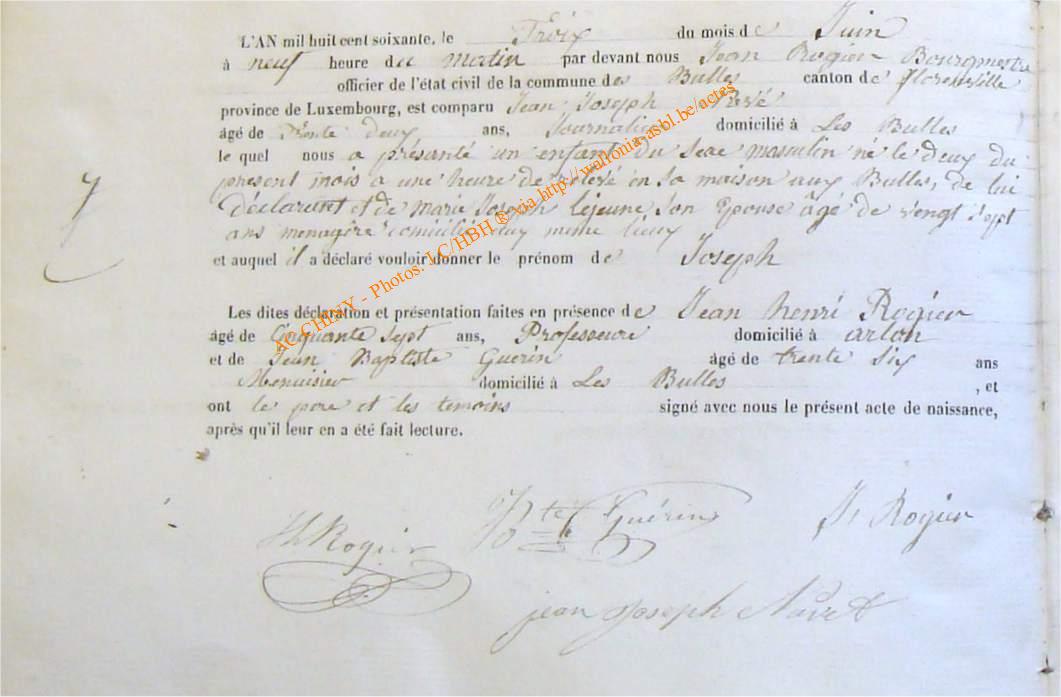 L'AN mil huit cent soixante, le Troix du mois de Juin
à neuf heure du matin par devant nous Jean Rogier Bourgmestre
officier de l'état civil de la commune des Bulles canton de florenville
province de Luxembourg, est comparu Jean Joseph
âgé de Trente deux ans, Journalier domicilié à Les Bulles
le quel nous a présanté un enfant du sexe masculin né le deux du
present mois a une heure de relevé en Sa maison aux Bulles, de lui
déclarant et de Marie Joseph Lejeune, son Epouse âgé de vengt sept
ans menagère domicilié aux même lieux
et auquel il a déclaré vouloir donner le prénom de Joseph
7
Les dites déclaration et présentation faites en présence de Jean henri Rogier
âgé de Cinquante sept ans, Professeure domicilié à arlon
et de Jean Baptiste Guerin âgé de trente Six ans
Menuisier domicilié à Les Bulles , et
ont le pere et les temoins signé avec nous le présent acte de naissance,
après qu'il leur en a été fait lecture.
JH Rogier Bte Guérin J. Rogier
jean joseph
AC CHINY - Photos: LC/HBH ® via http://wallonia-asbl.be/actes